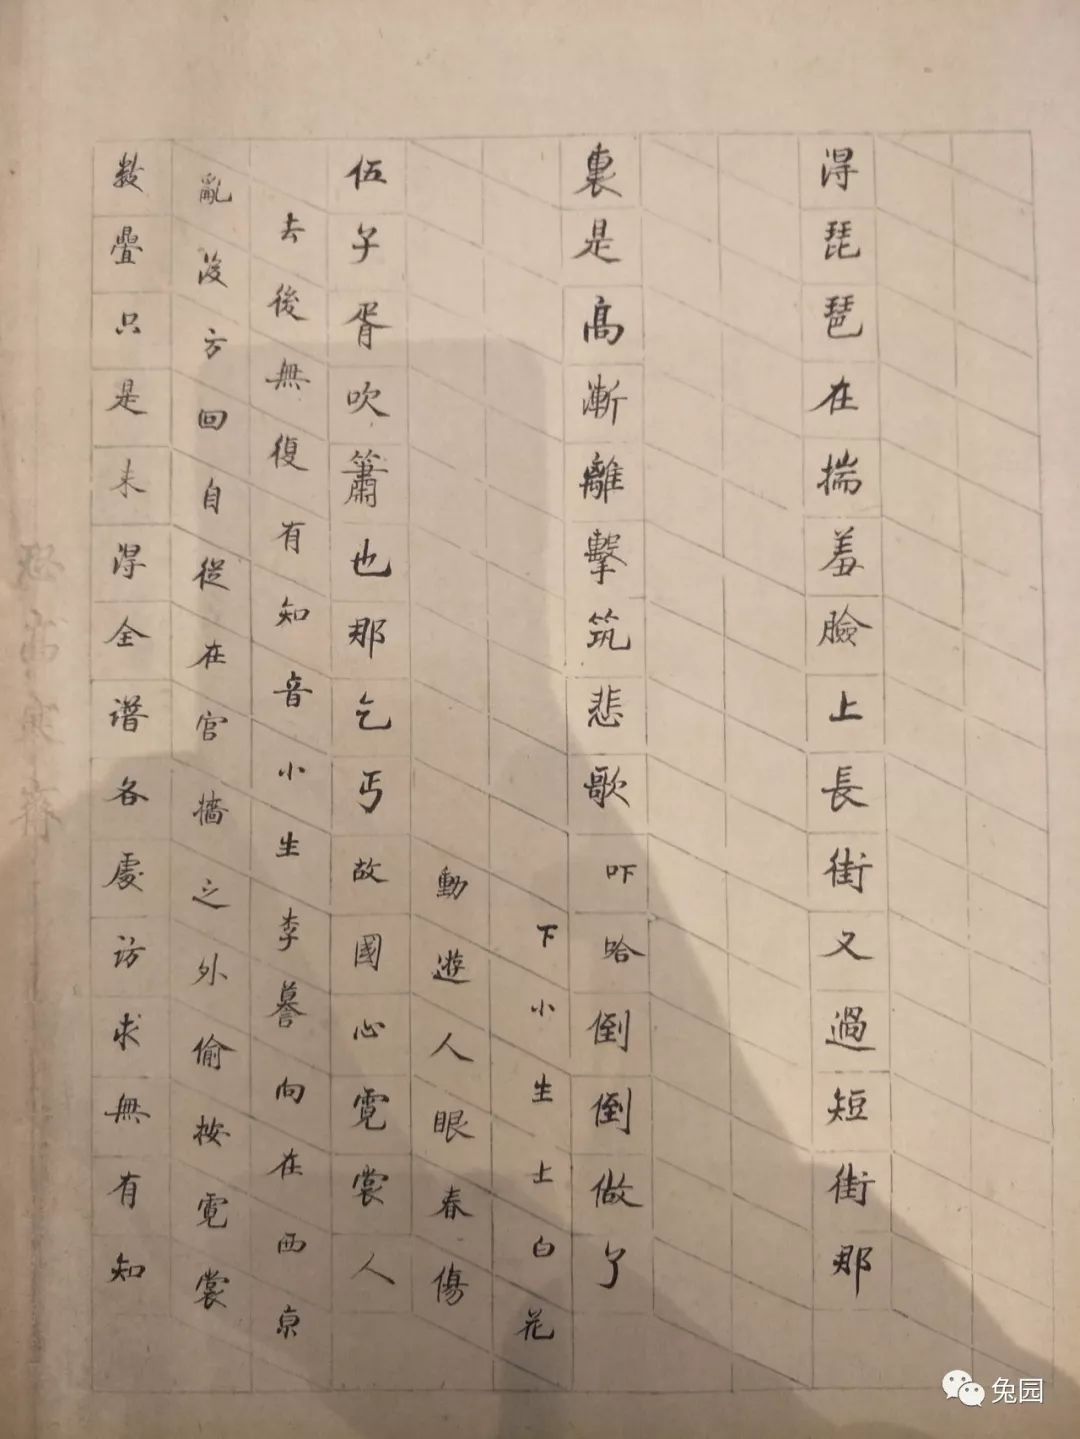 得琵琶在揣羞臉上長街又過短街那
裏是高漸離擊筑悲歌吓哈倒倒做了
下小生上白花
動遊人眼春傷
伍子胥吹簫也那乞丐故國心霓裳人
去後無復有知音小生李謩向在西京
亂後方回自從在官牆之外偷按霓裳
數疊只是未得全譜各處訪求無有知
兔园